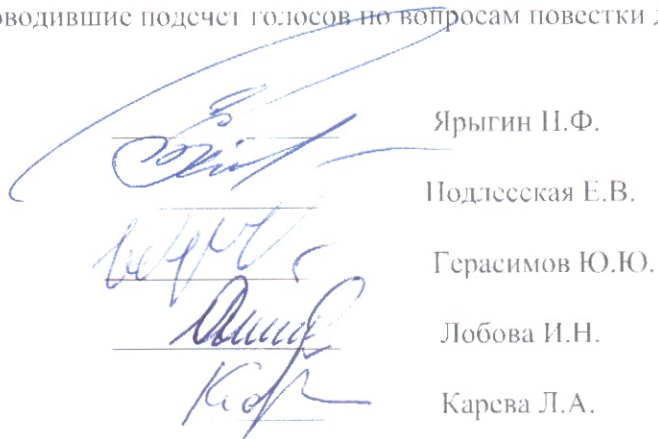 оводившие подсчет голосов по вопросам повестки д
Ярыгин Н.Ф.
Подлесская Е.В.
Герасимов Ю.Ю.
Лобова И.Н.
Карева Л.А.